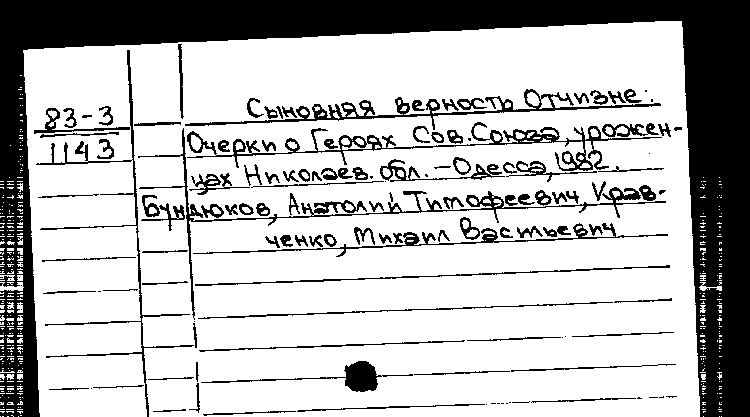 Сыновняя верность Отчизне:
83-3
1143
Очерки о Героях Сов. Союза, урожен-
цах Николаев. обл. - Одесса, 1982.
Бундюков, Анатолий Тимофеевич, Крав-
ченко, Михаил Васильевич.